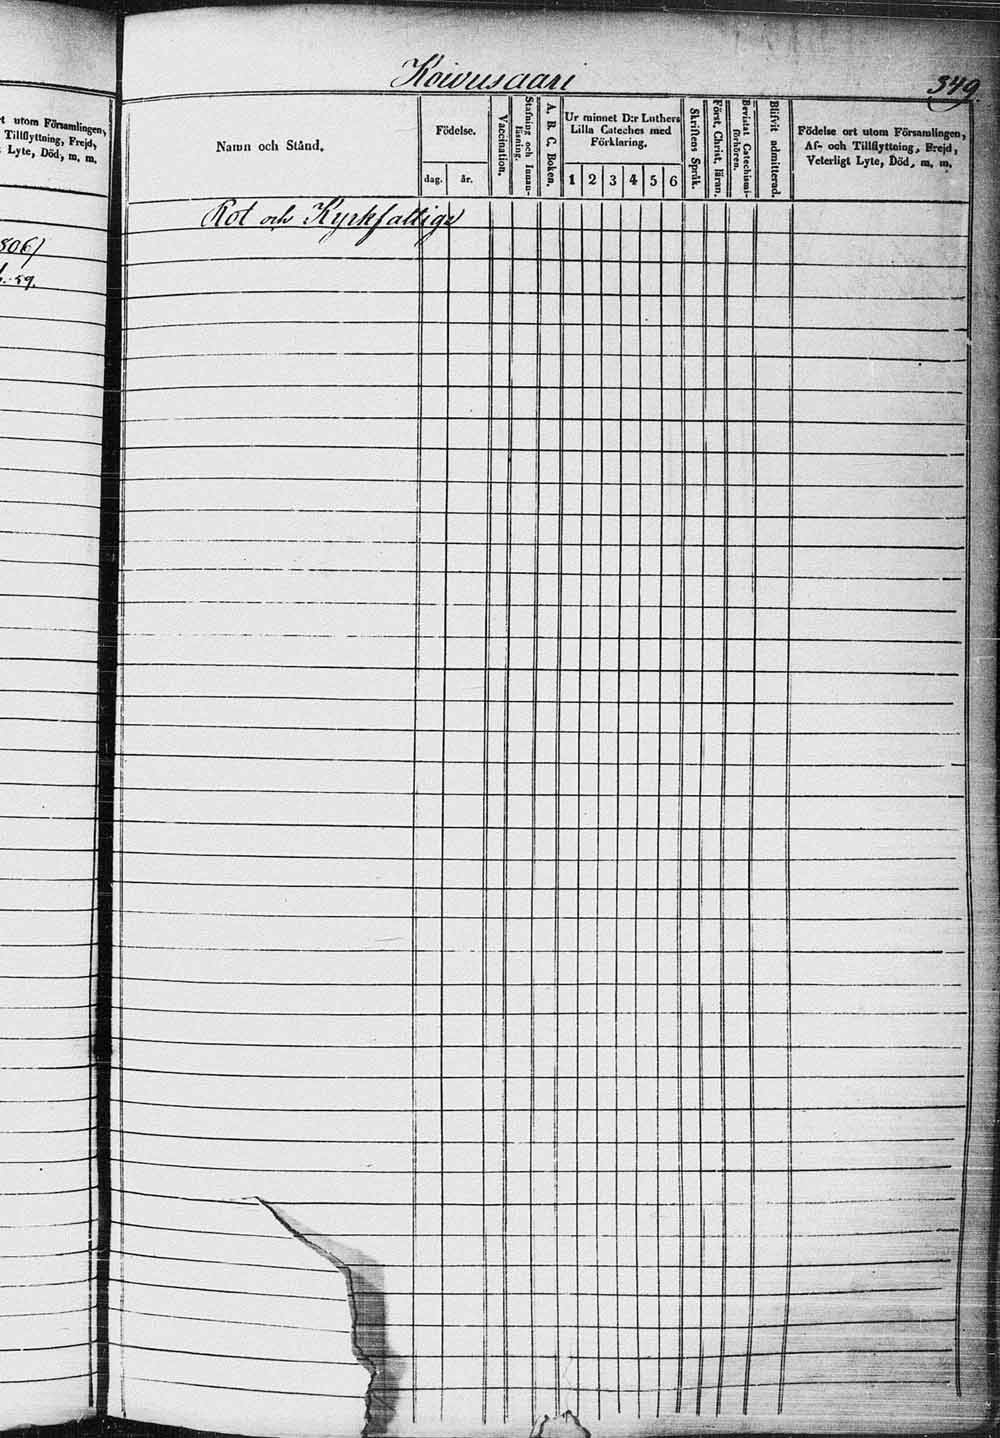 t utom Församlingen,
Tillflyttning, Frejd,
Lyte, Död, m. m.
806/
59.
Koivusaari
349.
Namn och Stånd.
Födelse.
dag.
år.
Vaccination.
Stafning och Innan-
läsning.
A. B. C. Boken.
Ur minnet D:r Luthers
Lilla Cateches med
Förklaring.
1 2 3 4 5 6
Skriftens Språk.
Först. Christ. läran.
Bevistat Catechismi-
förhören.
Blifvit admitterad.
Födelse ort utom Församlingen,
Af- och Tillflyttning, Frejd,
Veterligt Lyte, Död, m. m.
Rot och Kyrkfattige